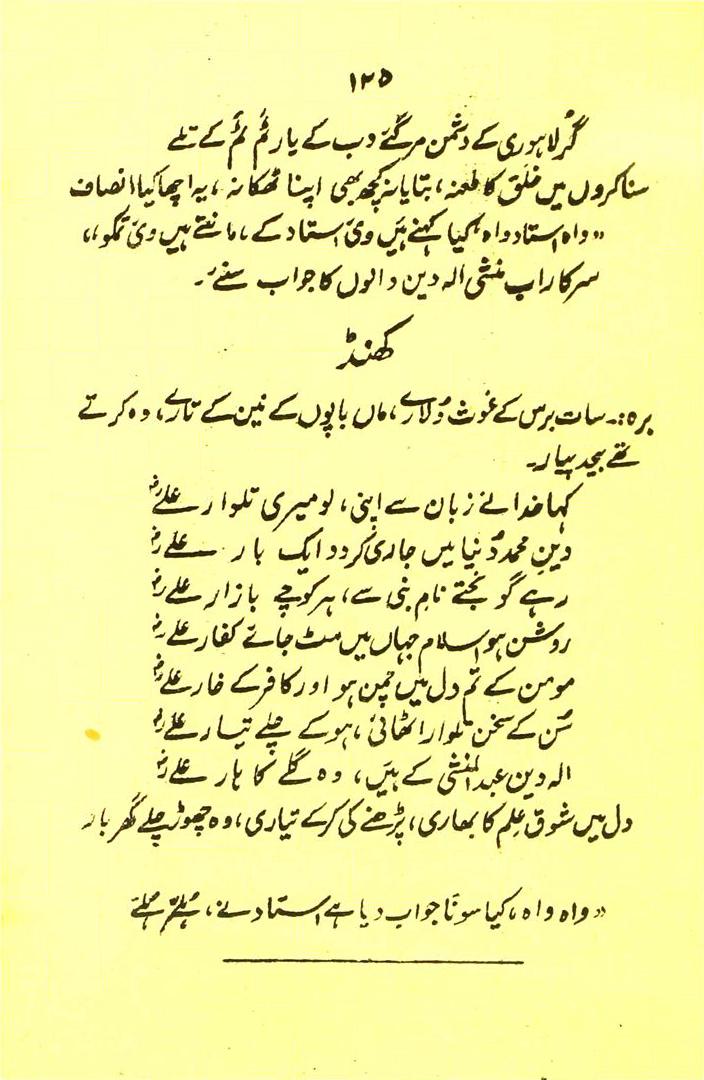 ۱۲۵
گر لاہوری کے دشمن مر گئے دب کے یار ٹم ٹم کے تلے
سنا کروں میں خلق کا طعنہ، بتایا نہ کچھ بھی اپنا ٹھکانہ، یہ اچھا کیا انصاف
"واہ استاد واہ کیا کہنے ہیں وی استاد کے، مانتے ہیں وی تمکو"
سرکار اب منشی الہ دین والوں کا جواب سنئے۔
کھنڈ
برہ:۔ سات برس کے غوث دُلارے، ماں باپوں کے نین کے تارے، وہ کرتے
تھے بیحد پیار۔
کہا خدا نے زبان سے اپنی، لو میری تلوار علیؓ
دینِ محمد دُنیا میں جاری کر دو ایک بار علیؓ
رہے گونجتے نام نبی سے، ہر کوچے بازار علیؓ
روشن ہو اسلام جہاں میں مٹ جائے کفار علیؓ
مومن کے تم دل میں چمن ہو اور کافر کے خار علیؓ
سُن کے سخن تلوار اٹھائی، ہو کے چلے تیار علیؓ
الہ دین عبدالمنشی کے ہیں، وہ گلے کا ہار علیؓ
دل میں شوق عِلم کا بھاری، پڑھنے کی کر کے تیاری، وہ چھوڑ چلے گھر بار
"واہ واہ، کیا سونا جواب دیا ہے استاد نے،